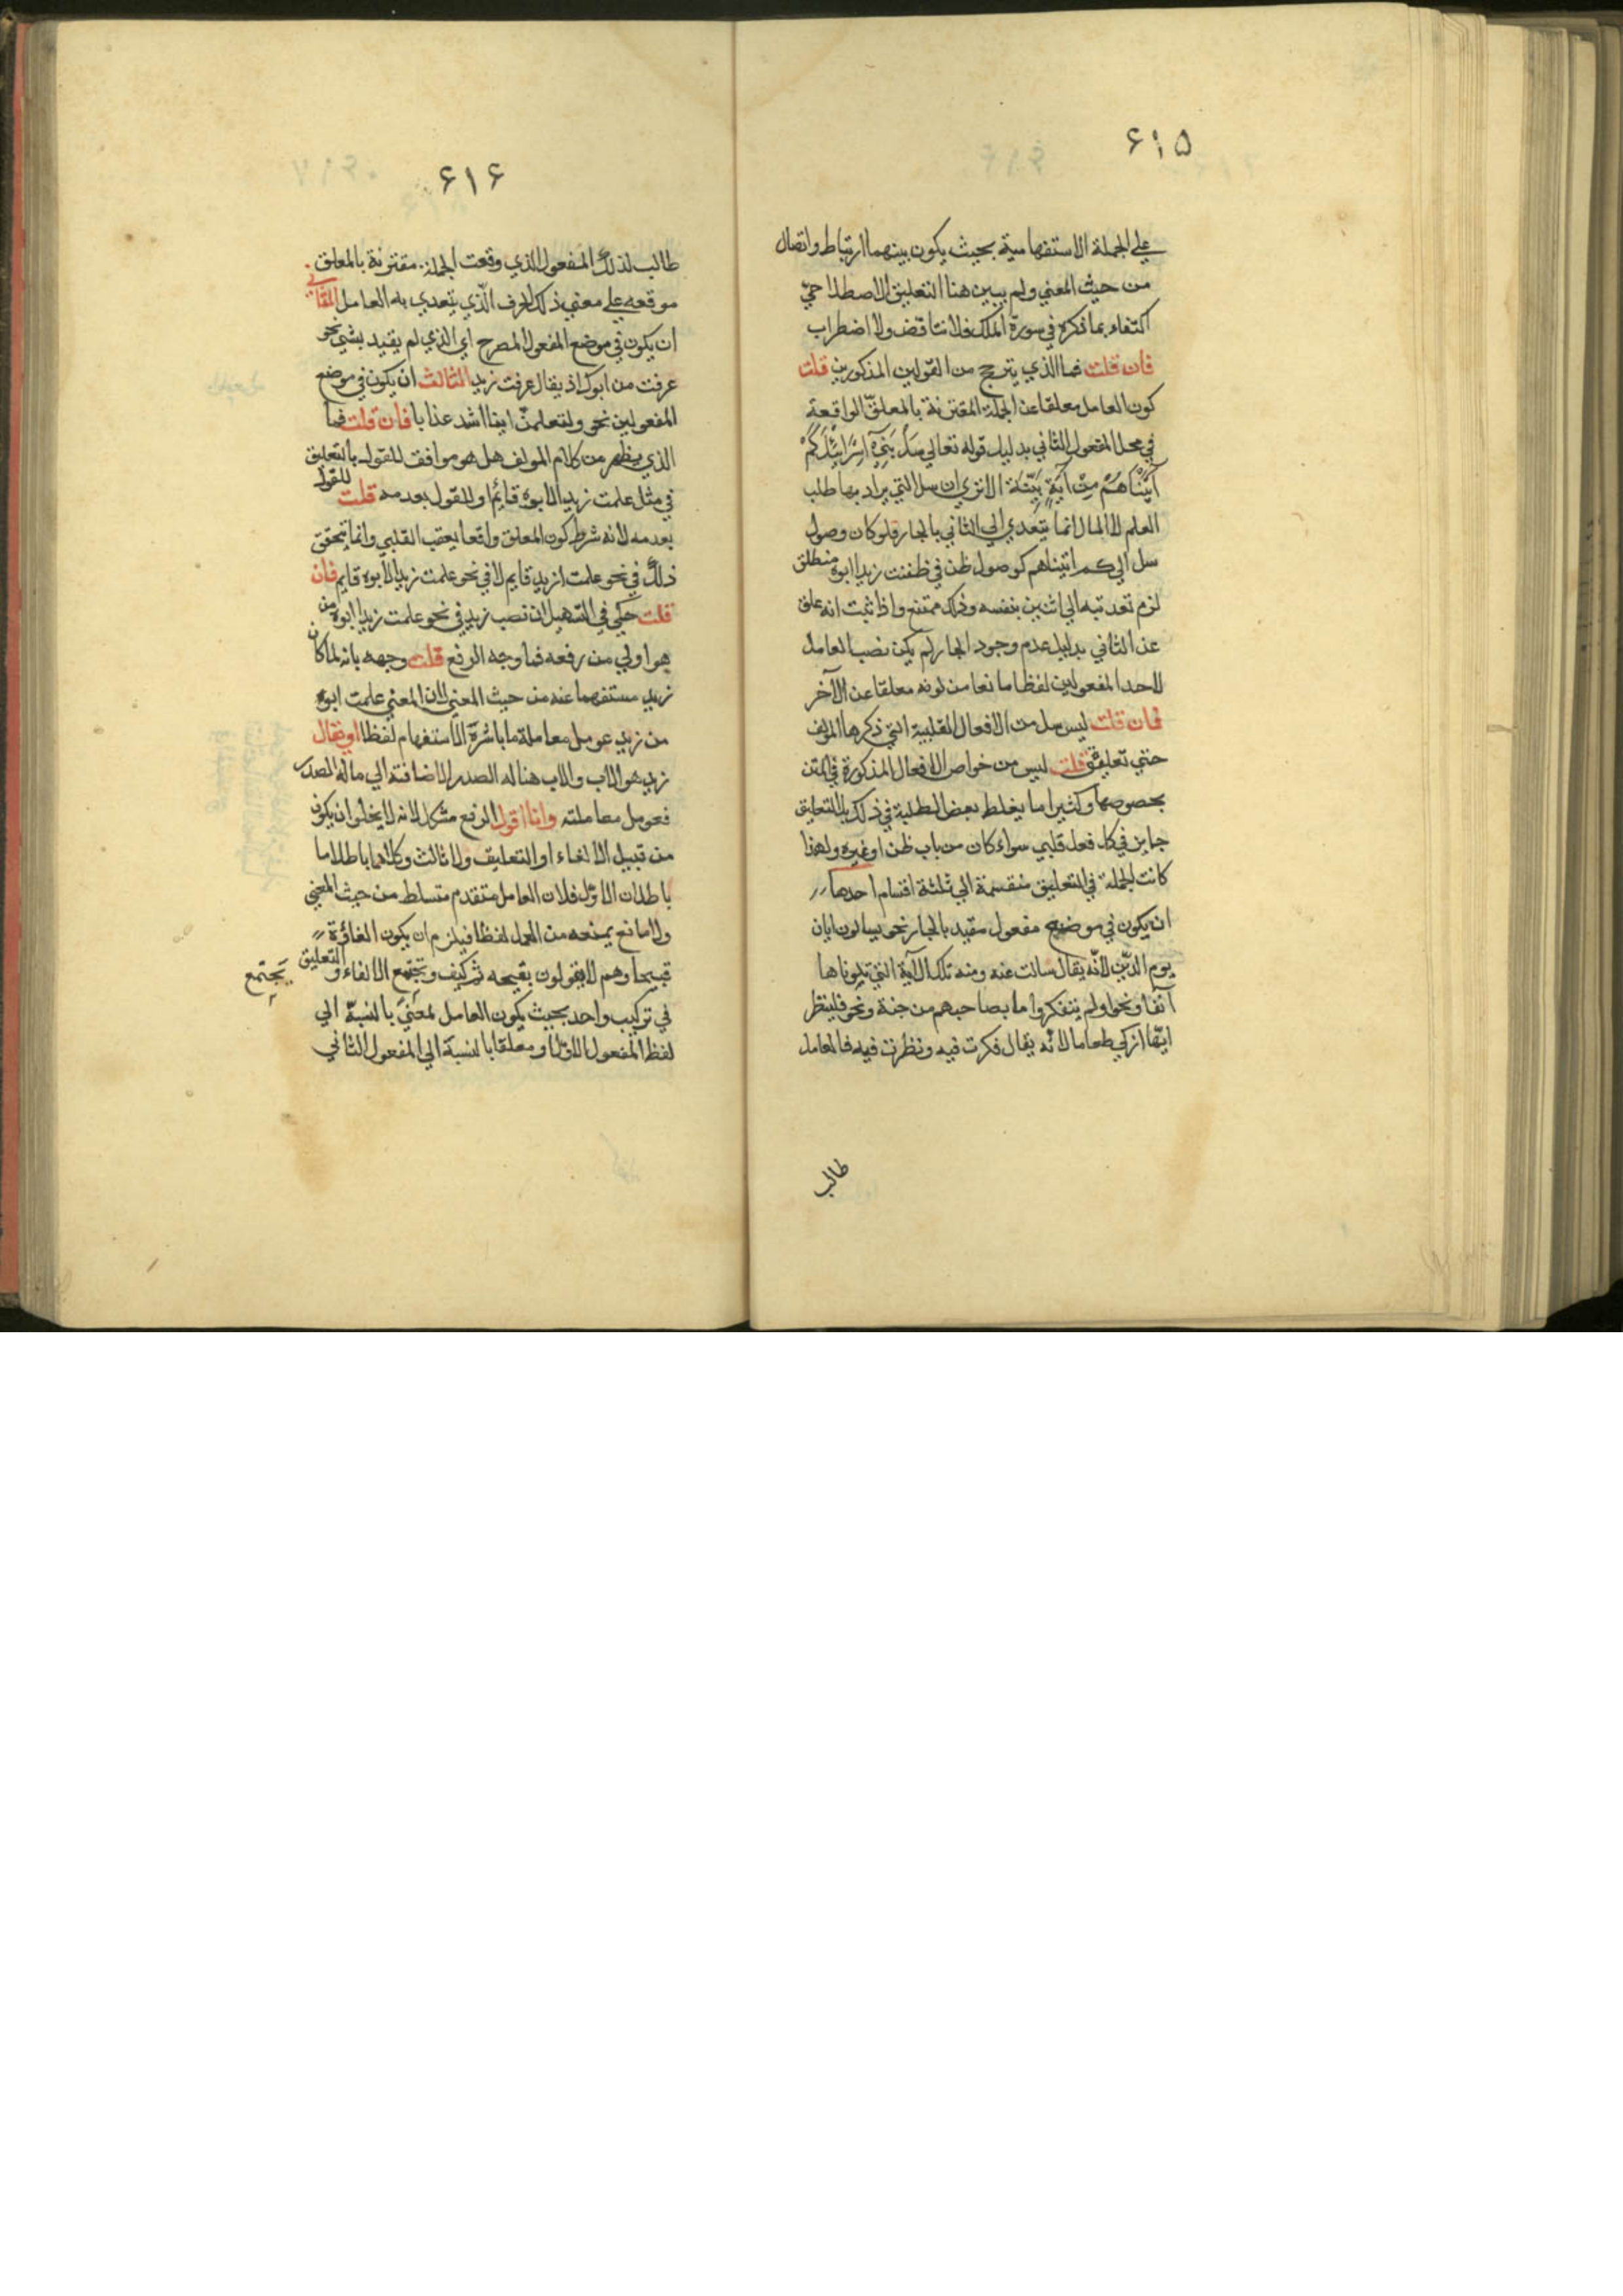 ۶۱۵
علي الجملة الاستفهامية بحيث يكون بينهما ارتباط واتصال
من حيث المعني ولم يبين هنا التعليق الاصطلاحيّ
اكتفاء بما ذكره في سورة الملك فلا تناقض ولا اضطراب
فان قلت فما الذي يترجح من القولين المذكورين قلت
كون العامل معلقا عن الجملة المقترنة بالمعلّق الواقعة
في محل المفعول الثاني بدليل قوله تعالي سَلْ بَنِيٓ اِسْرَائِيْلَ كَمْ
آتَيْنَاهُمْ مِنْ آيَةٍ بَيِّنَة الا تري ان سل التي يراد بها طلب
العلم لا المال انما يتعدي الي الثاني بالجار فلو كان وصول
سل الي كم اتيناهم كوصول ظن في ظننت زيدا ابوه منطلق
لزم تعديته الي اثنين بنفسه وذلك ممتنع واذا ثبت انه علق
عن الثاني بدليل عدم وجود الجار لم يكن نصب العامل
لاحد المفعولين لفظا مانعا من كونه معلقا عن الآخر
فان قلت ليس سل من الافعال القلبية التي ذكرها المؤلف
حتي تعليق قلت ليس من خواص الافعال المذكورة في المتن
بخصوصها وكثيرا ما يغلط بعض الطلبة في ذلك بل التعليق
جايز في كل فعل قلبي سواء كان من باب ظن او غيره ولهذا
كانت الجملة في التعليق منقسمة الي ثلثة اقسام احدها
ان يكون في موضع مفعول مقيد بالجار نحو يسالون ايان
يوم الدّين لانّه يقال سالت عنه ومنه تلك الآية التي تلوناها
آنفا ونحو اولم يتفكروا ما بصاحبهم من جنة ونحو فلينظر
ايّها ازكي طعاما لانّه يقال فكرت فيه ونظرت فيه فالعامل
طالب
۶۱۶
طالب لذلك المفعول الذي وقعت الجملة مقترنة بالمعلق
موقعه علي معني ذلك الحرف الّذي يتعدي به العامل الثاني
ان يكون في موضع المفعول المصرح اي الذي لم يقيد بشي نحو
عرفت من ابوك اذ يقال عرفت زيدا الثالث ان يكون في موضع
المفعولين نحو ولتعلمنّ اينا اشد عذابا فان قلت فما
الذي يظهر من كلام المولف هل هو موافق للقول بالتعليق
في مثل علمت زيدا لابوه قائم او للقول بعدمه قلت للقول
بعدمه لانه شرط كون المعلق واقعا بعقب القلبي وانما يتحقق
ذلك في نحو علمت ازيد قايم لا في نحو علمت زيدا لابوه قايم فان
قلت حكي في التسهيل ان نصب زيد في نحو علمت زيدا ابوه من
هو اولي من رفعه فما وجه الرفع قلت وجهه بانه لما كان
زيد مستفهما عنه من حيث المعني لان المعني علمت ابوه
من زيد عومل معاملة ما باشرة الاستفهام لفظا او يقال
زيد هو الاب والاب هنا له الصدر لاضافته الي ماله الصدر
فعومل معاملته وانا اقول الرفع مشكل لانه لا يخلوا ان يكون
من قبيل الالغاء او التعليق ولا ثالث وكلاهما باطل اما
باطلان الاوّل فلان العامل متقدم متسلط من حيث المعني
ولا مانع يمنعه من العمل لفظا فيلزم ان يكون الغاؤه
قبيحا وهم لا يقولون بقبحه ثم كيف ويجتمع الالغاء والتعليق
يَجتمع
في تركيب واحد بحيث يكون العامل لمعنيً بالنسبة الي
لفظ المفعول الاوّل او معلقا بالنسبة الي المفعول الثاني